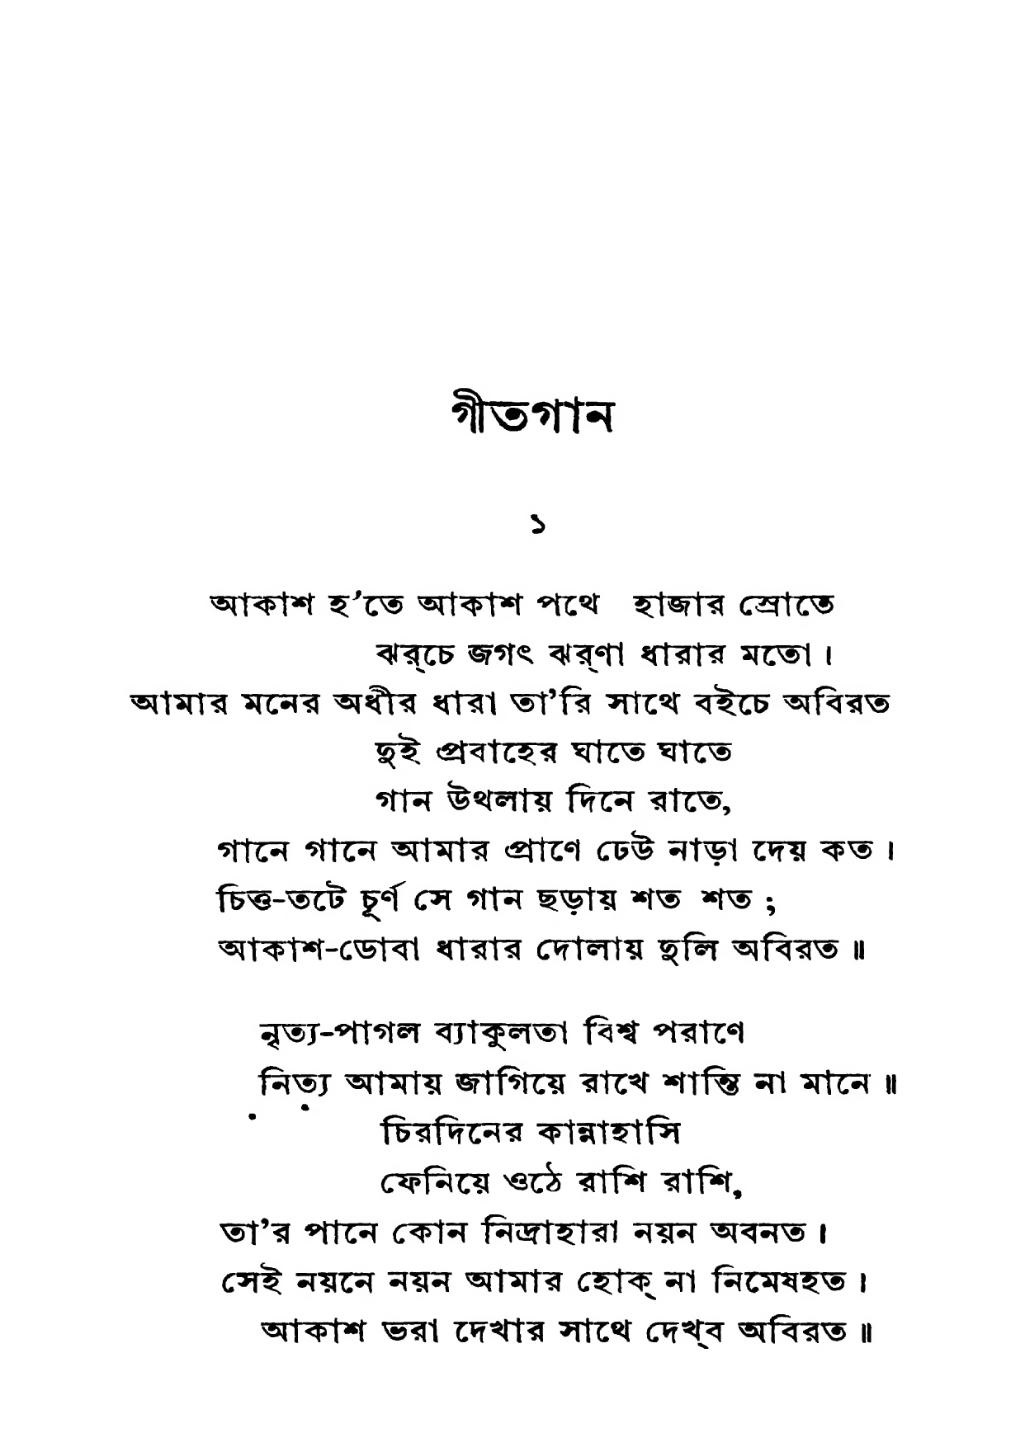 গীতগান
১
আকাশ হ’তে আকাশ পথে হাজার স্রোতে
ঝর্‌চে জগৎ ঝর্‌ণা ধারার মতো।
আমার মনের অধীর ধারা তা’রি সাথে বইচে অবিরত
দুই প্রবাহের ঘাতে ঘাতে
গান উথলায় দিনে রাতে,
গানে গানে আমার প্রাণে ঢেউ নাড়া দেয় কত।
চিত্ত-তটে চূর্ণ সে গান ছড়ায় শত শত;
আকাশ-ডোবা ধারার দোলায় দুলি অবিরত॥
নৃত্য-পাগল ব্যাকুলতা বিশ্ব পরাণে
নিত্য আমায় জাগিয়ে রাখে শান্তি না মানে॥
চিরদিনের কান্নাহাসি
ফেনিয়ে ওঠে রাশি রাশি,
তা’র পানে কোন নিদ্রাহারা নয়ন অবনত।
সেই নয়নে নয়ন আমার হোক্ না নিমেষহত।
আকাশ ভরা দেখার সাথে দেখ্‌ব অবিরত॥